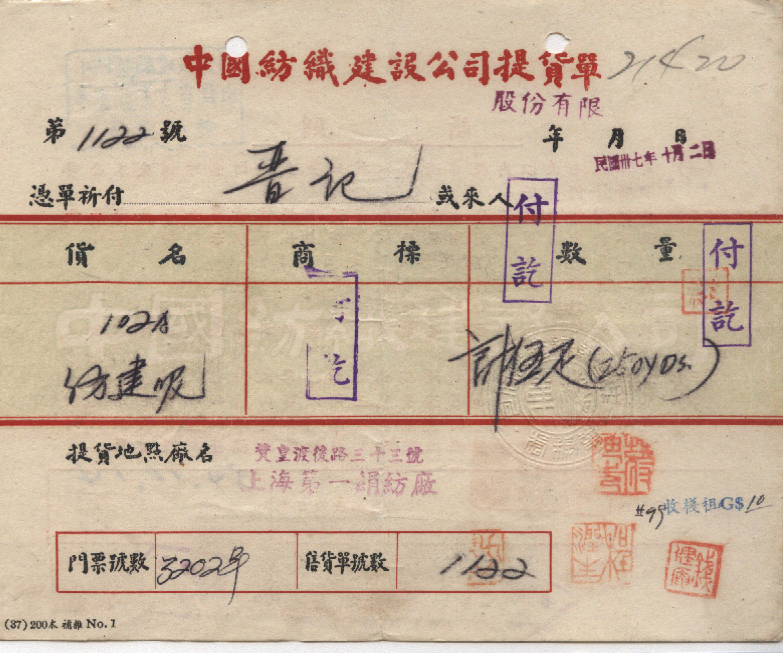 中國紡織建設公司提貨單 21420
股份有限
第 1122 號 年 月 日
民國卅七年十月二日
憑單祈付 晋記 或來人
付訖
付訖
貨名 商標 數量
102A
付訖
紡建呢
計伍疋 (250YDS.)
提貨地點廠名
路三十三號
上海第一絹紡廠
#99 收棧租G$10
門票號數 3202 售貨單號數 1122
(37) 200本 No. 1